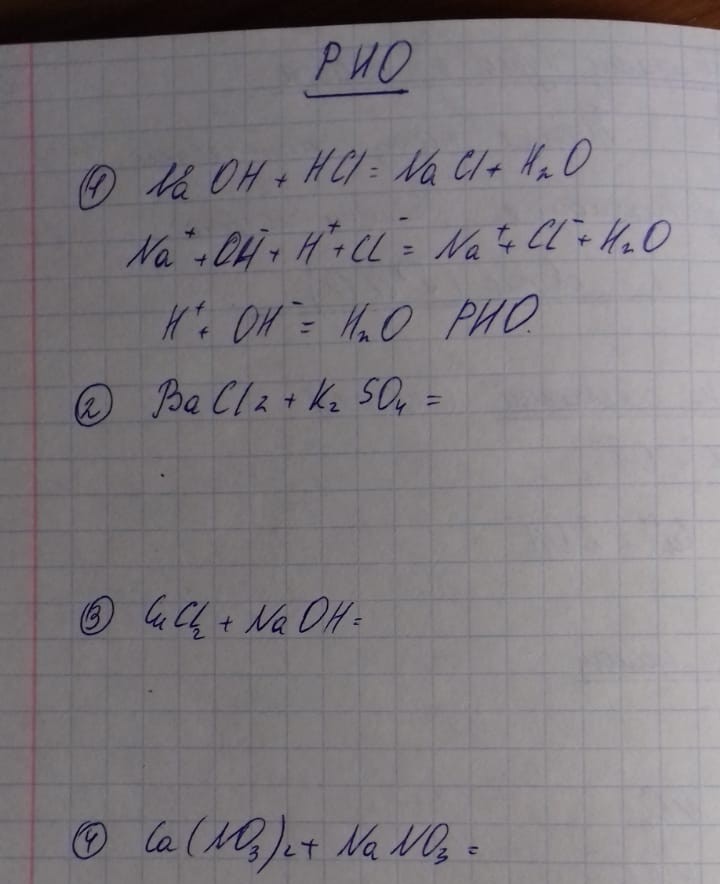 РИО
① NaOH + HCl = NaCl + H₂O
Na⁺ + OH⁻ + H⁺ + Cl⁻ = Na⁺ + Cl⁻ + H₂O
H⁺ + OH⁻ = H₂O РИО.
② BaCl₂ + K₂SO₄ =
③ CuCl₂ + NaOH =
④ Ca(NO₃)₂ + NaNO₃ =